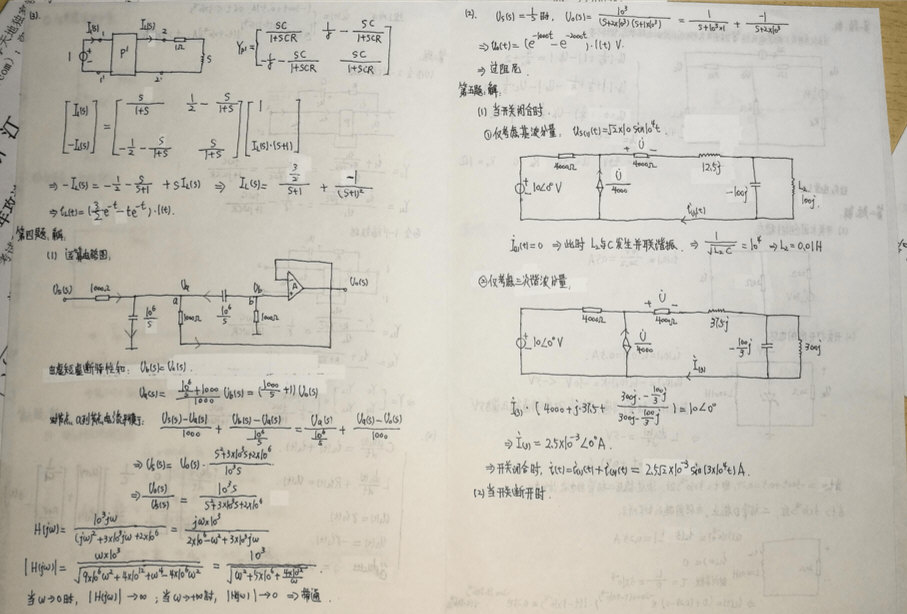 (3).
I₁(s) I₂(s)
1 P' 2 1Ω S
1' 2'
Yₚ' = [ SC/(1+SCR) 1/r − SC/(1+SCR) ; −1/r − SC/(1+SCR) SC/(1+SCR) ]
[ I₁(s) ; −I₂(s) ] = [ S/(1+S) 1/2 − S/(1+S) ; −1/2 − S/(1+S) S/(1+S) ] [ 1 ; I₂(s)·(S+1) ]
⇒ −I₂(s) = −1/2 − S/(S+1) + S I₂(s) ⇒ I₂(s) = (3/2)/(S+1) + (−1)/(S+1)²
⇒ i₂(t) = (3/2 e^-t − te^-t)·1(t).
第四题. 解:
(1) 运算电路图:
U₅(s) 1000Ω Uₐ U_b A U₀(s)
a b
10⁶/S 1000Ω 10⁶/S 1000Ω
由虚短虚断特性知: U_b(s) = U₀(s).
Uₐ(s) = (10⁶/S + 1000)/1000 U_b(s) = (1000/S + 1) U₀(s)
(U₅(s) − Uₐ(s))/1000 + (U_b(s) − Uₐ(s))/(10⁶/S) = Uₐ(s)/(10⁶/S) + (Uₐ(s) − U₀(s))/1000
⇒ U₅(s) = U₀(s)· (S² + 3×10³S + 2×10⁶)/(10³S)
⇒ U₀(s)/U₅(s) = 10³S/(S² + 3×10³S + 2×10⁶)
H(jω) = 10³jω/((jω)² + 3×10³jω + 2×10⁶) = jω×10³/(2×10⁶ − ω² + 3×10³jω)
|H(jω)| = ω×10³/√(9×10⁶ω² + 4×10¹² + ω⁴ − 4×10⁶ω²) = 10³/√(ω² + 5×10⁶ + 4×10¹²/ω)
当 ω→0时, |H(jω)|→∞; 当 ω→+∞时, |H(jω)|→0 ⇒ 带通.
(2). U₅(s) = 1/S 时, U₀(s) = 10³/((S+2×10³)(S+1×10³)) = 1/(S+10³×1) + (−1)/(S+2×10³)
⇒ U₀(t) = (e^-1000t − e^-2000t)·1(t) V.
⇒ 过阻尼.
第五题. 解:
(1) 当开关闭合时.
①仅考虑基波分量, U₅₍₁₎(t) = √2×10 sin10⁴t.
+ U̇ −
4000Ω 4000Ω 12.5j
10∠0° V U̇/4000 −100j L₂ 100j.
i₍₁₎(t)
İ₍₁₎(t) = 0 ⇒ 此时 L₂与C发生并联谐振. ⇒ 1/√(L₂C) = 10⁴ ⇒ L₂ = 0.01H
②仅考虑三次谐波分量,
+ U̇ −
4000Ω 4000Ω 37.5j
10∠0° V U̇/4000 −100/3 j 300j
İ₍₃₎
İ₍₃₎·(4000 + j·37.5 + (300j·−100/3 j)/(300j−100/3 j)) = 10∠0°
⇒ İ₍₃₎ = 2.5×10⁻³∠0° A.
⇒ 开关闭合时, i(t) = i₍₁₎(t) + i₍₃₎(t) = 2.5√2×10⁻³ sin(3×10⁴t) A.
(2) 当开关断开时.